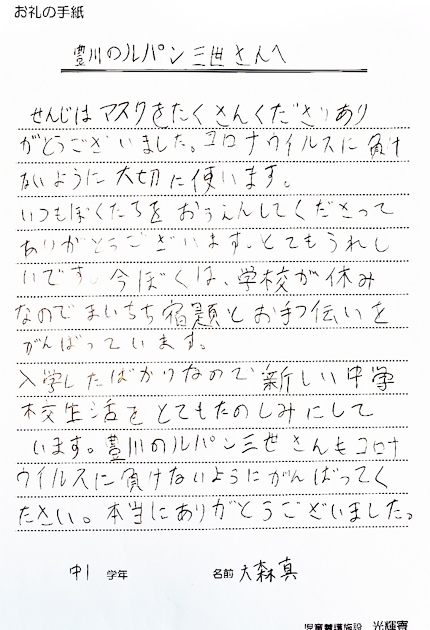 お礼の手紙
豊川のルパン三世さんへ
せんじはマスクをたくさんくださりあり
がとうございました。コロナウイルスに負け
ないように大切に使います。
いつもぼくたちをおうえんしてくださって
ありがとうございます。とてもうれし
いです。今ぼくは、学校が休み
なのでまいちち宿題とお手伝いを
がんばっています。
入学したばかりなので新しい中学
校生活をとてもたのしみにして
います。豊川のルパン三世さんもコロナ
ウイルスに負けないようにがんばってく
ださい。本当にありがとうございました。
中1 学年 名前 大森真
児童養護施設 光輝寮